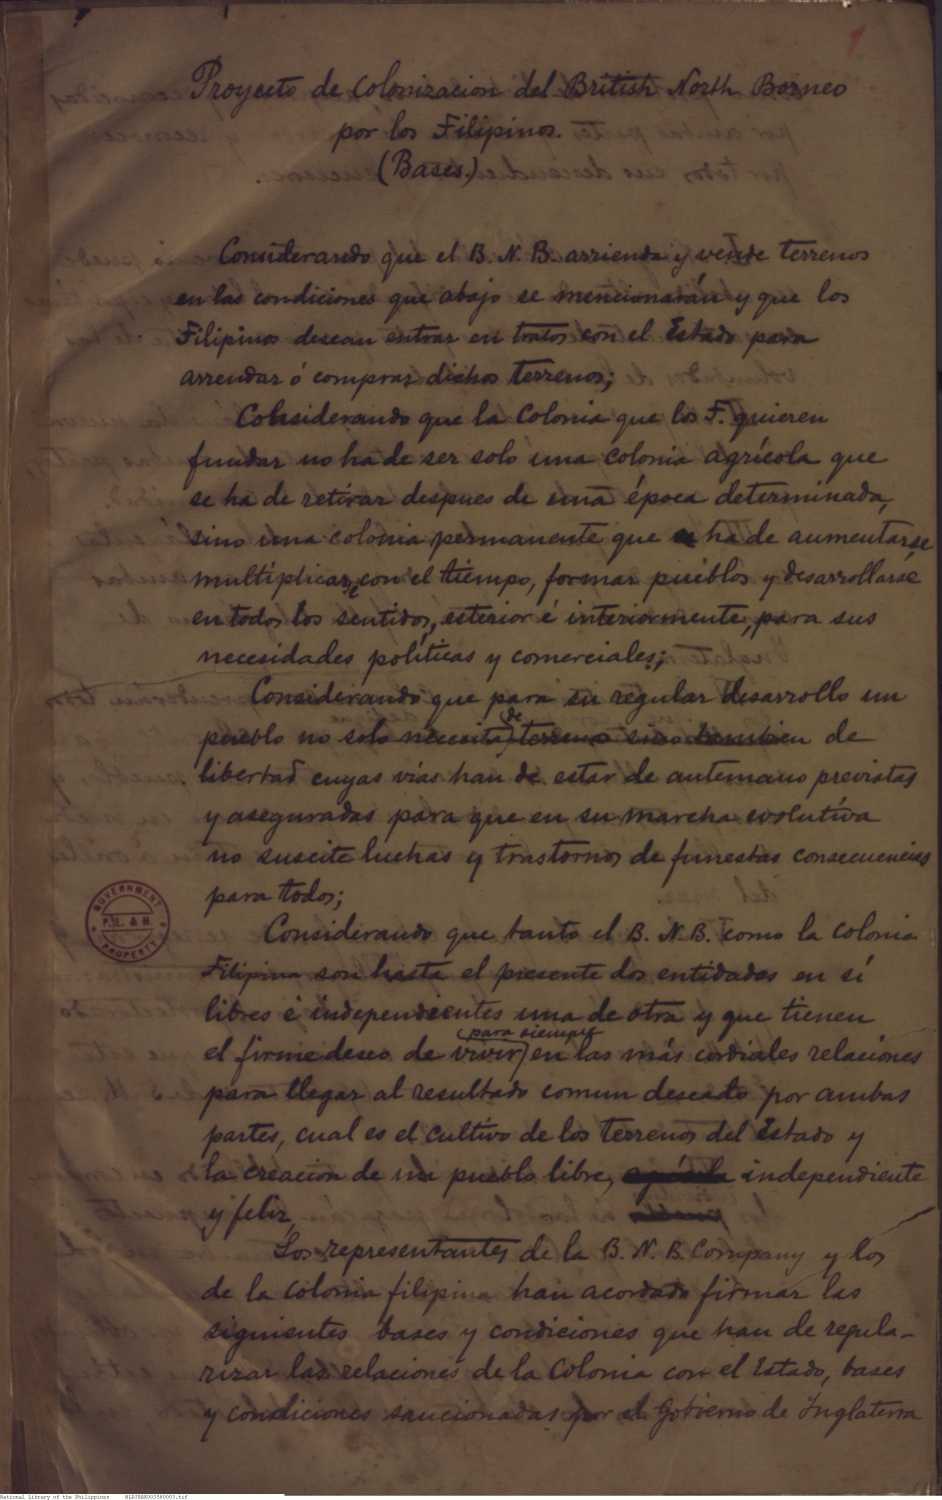 1
Proyecto de colonizacion del British North Borneo
por los Filipinos.
(Bases.)
Considerando que el B. N. B. arrienda y vende terrenos
en las condiciones que abajo se mencionarán y que los
Filipinos desean entrar en tratos con el Estado para
arrendar ó comprar dichos terrenos;
Considerando que la Colonia que los F. quieren
fundar no ha de ser solo una colonia agrícola que
se ha de retirar despues de una época determinada,
sino una colonia permanente que ha de aumentarse,
multiplicarse con el tiempo, formar pueblos y desarrollarse
en todos los sentidos, esterior é interiormente, para sus
necesidades políticas y comerciales;
Considerando que para su regular desarrollo un
pueblo no solo necesita de terreno sino tambien de
libertad cuyas vías han de estar de antemano previstas
y aseguradas para que en su marcha evolutiva
no suscite luchas y trastornos de funestas consecuencias
para todos;
Considerando que tanto el B. N. B. como la colonia
Filipina son hasta el presente dos entidades en sí
libres é independientes una de otra y que tienen
el firme deseo de vivir para siempre en las más cordiales relaciones
para llegar al resultado comun deseado por ambas
partes, cual es el cultivo de los terrenos del Estado y
la creacion de un pueblo libre, independiente
y feliz,
Los representantes de la B. N. B. Company y los
de la colonia filipina han acordado firmar las
siguientes bases y condiciones que han de regula-
rizar las relaciones de la Colonia con el Estado, bases
y condiciones sancionadas por el Gobierno de Inglaterra
GOVERNMENT
P.L. & M.
PROPERTY
National Library of the Philippines